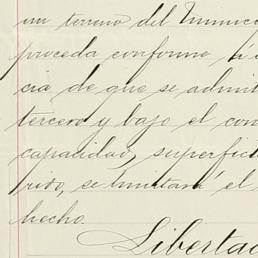 un terreno del Munici
proceda conforme
cia de que se admi
tercero y bajo el con
capacidad, superfici
rido, se limitará el
hecho.
Libertad